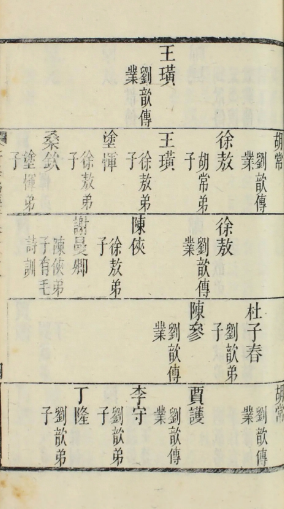 王璜 劉歆傳業
胡常 劉歆傳業
徐敖 胡常弟子
王璜 徐敖弟子
塗惲 徐敖弟子
桑欽 塗惲弟子
徐敖 劉歆傳業
陳俠 徐敖弟子
謝曼卿 陳俠弟子有毛詩訓
杜子春 劉歆弟子
陳參 劉歆傳業
胡常 劉歆傳業
賈護 劉歆傳業
李守 劉歆弟子
丁隆 劉歆弟子